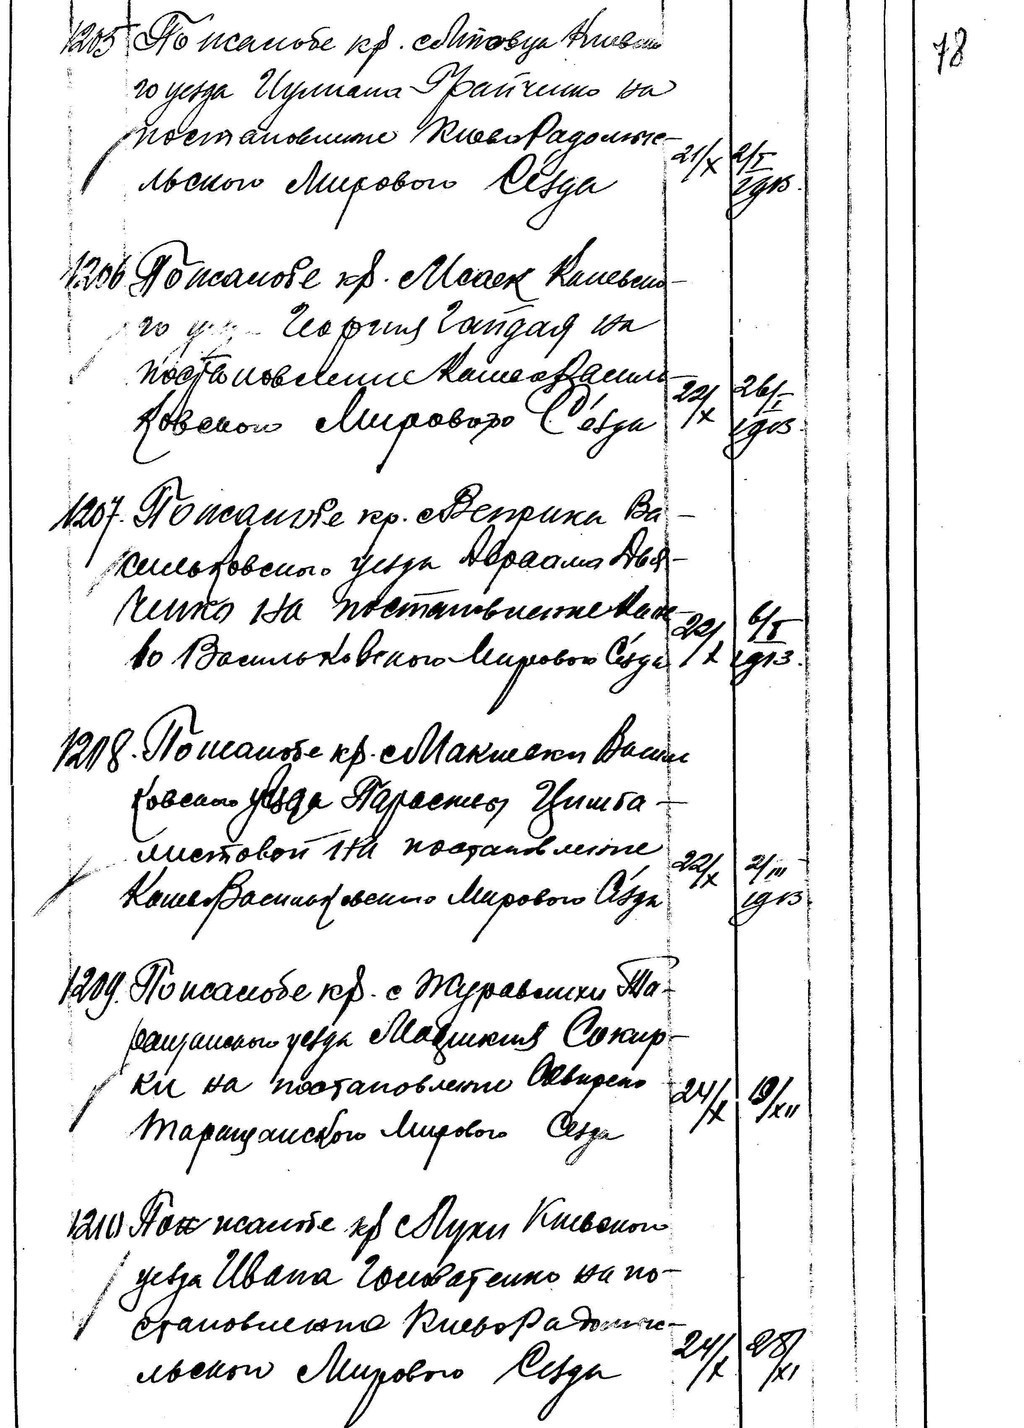 78
1205 По жалобе кр. с Литовца Киевско
го уезда Иулиана Грайченко на
постановление Киево Радомыс-
льского Мирового Сезда 21/X 2/I 1913.
1206 По жалобе кр. с Каневско-
го Георгия Гайдая на
постановление Канево Василь-
ковского Мирового Сѐзда 22/X 26/I 1913.
1207. По жалобе кр. с Веприка Ва-
сильковского уезда Авраама Дья-
ченко на постановление Кане
во Васильковского Мирового Сѐзда 22/X 6/I 1913.
1208. По жалобе кр. с Макиевки Василь
ковского уезда Парасковы Цимба-
листовой на постановление
Канево Васильковского Мирового Сѐзда 22/X 2/III 1913.
1209. По жалобе кр. с Журавлихи Та-
ращанского уезда Сокир-
ки на постановление Сквирско
Таращанского Мирового Сезда 24/X 19/XII
1210 По жалобе кр с Луки Киевского
уезда Ивана Головатенко на по-
становление Киево Радомыс-
льского Мирового Сезда 24/X 28/XI